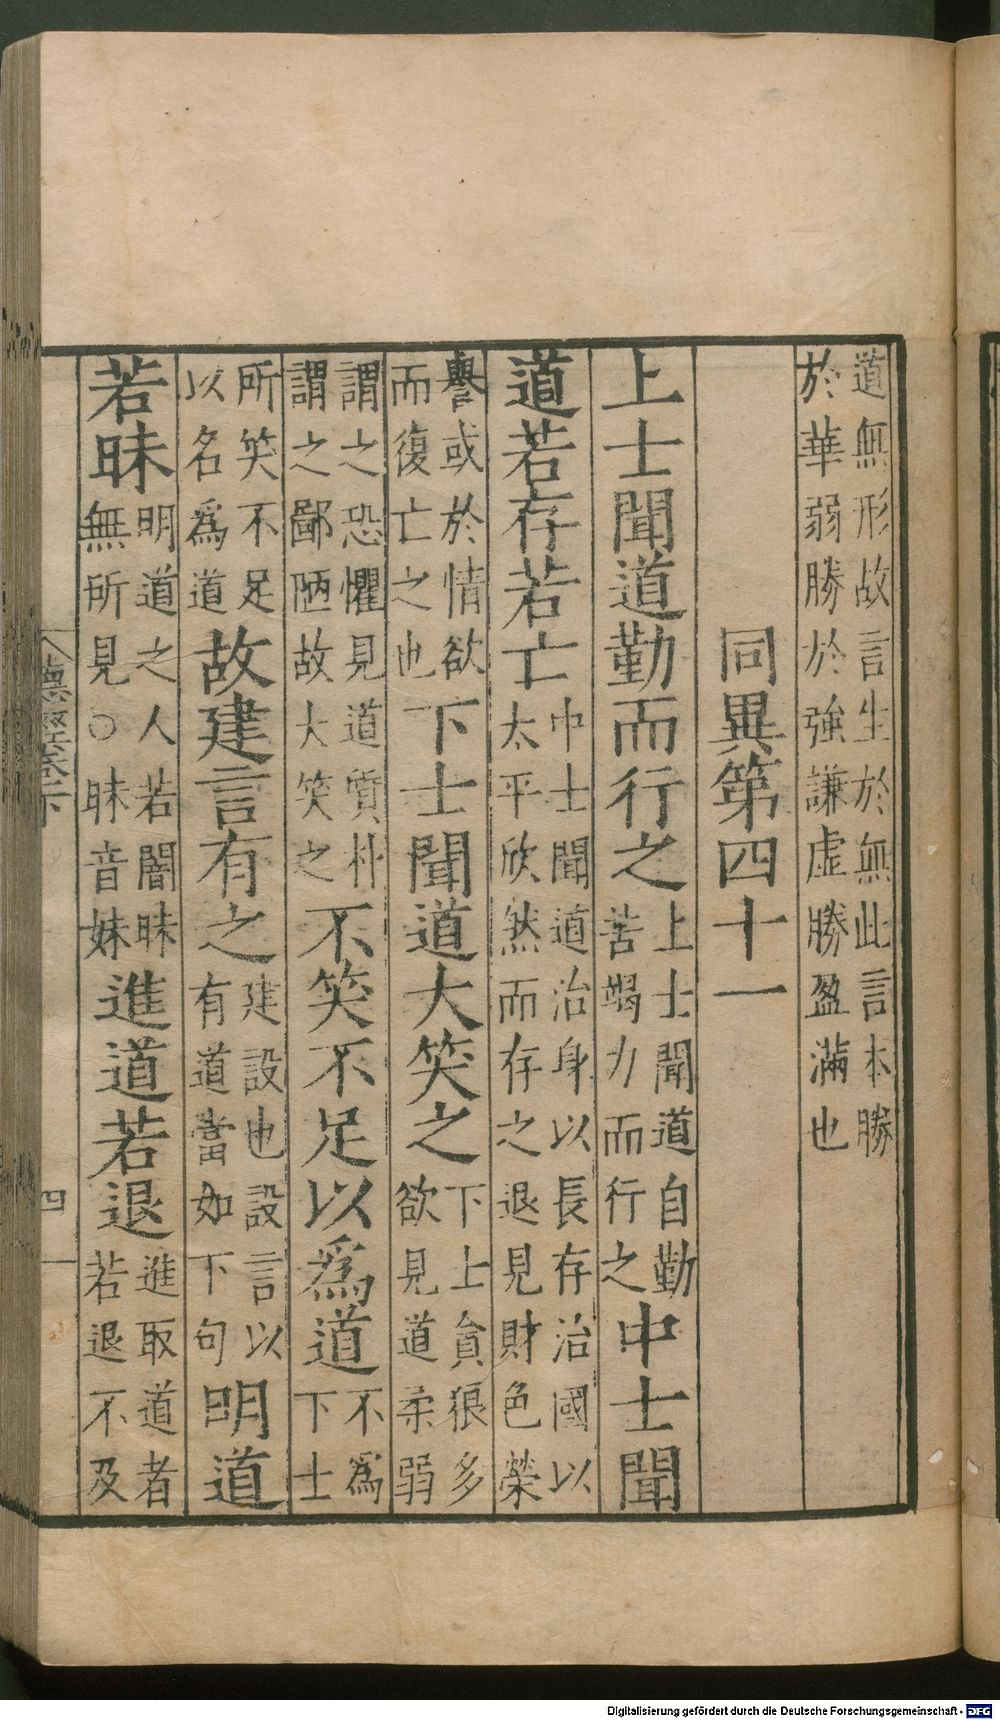 道無形故言生於無此言本勝
於華弱勝於強謙虛勝盈滿也
同異第四十一
上士聞道勤而行之
上士聞道自勤
苦竭力而行之
中士聞
道若存若亡
中士聞道治身以長存治國以
太平欣然而存之退見財色榮
譽或於情欲
而復亡之也
下士聞道大笑之
下士貪狠多
欲見道柔弱
謂之恐懼見道質朴
謂之鄙陋故大笑之
不笑不足以爲道
不爲下士
所笑不足
以名爲道
故建言有之
建設也設言以
有道當如下句
明道
若昧
明道之人若闇昧
無所見○昧音妹
進道若退
進取道者
若退不及
德經卷下
四
Digitalisierung gefördert durch die Deutsche Forschungsgemeinschaft - DFG